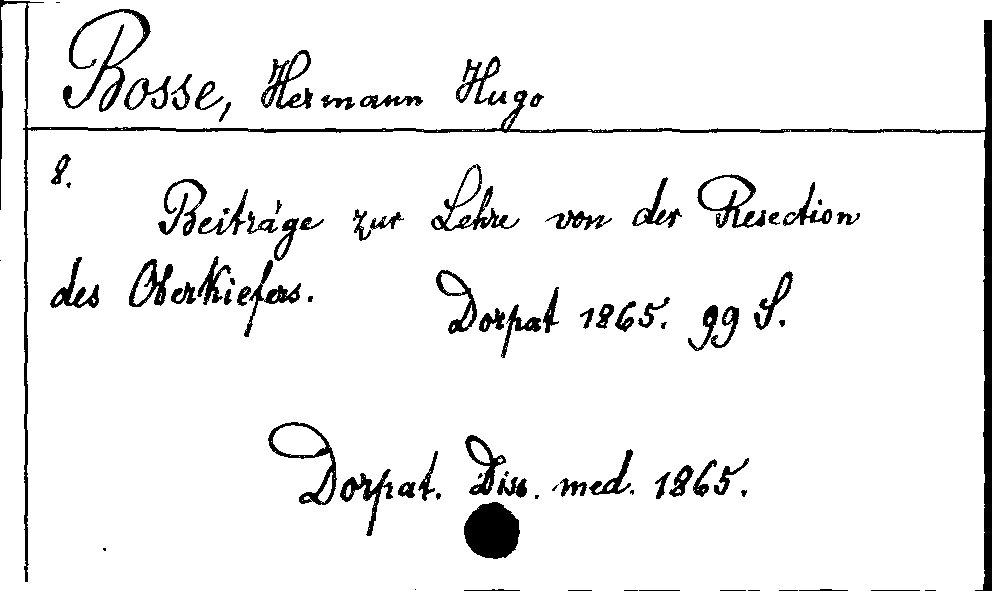 Bosse, Hermann Hugo
8.
Beiträge zur Lehre von der Resection
des Oberkiefers.
Dorpat 1865. 99 S.
Dorpat. Diss. med. 1865.